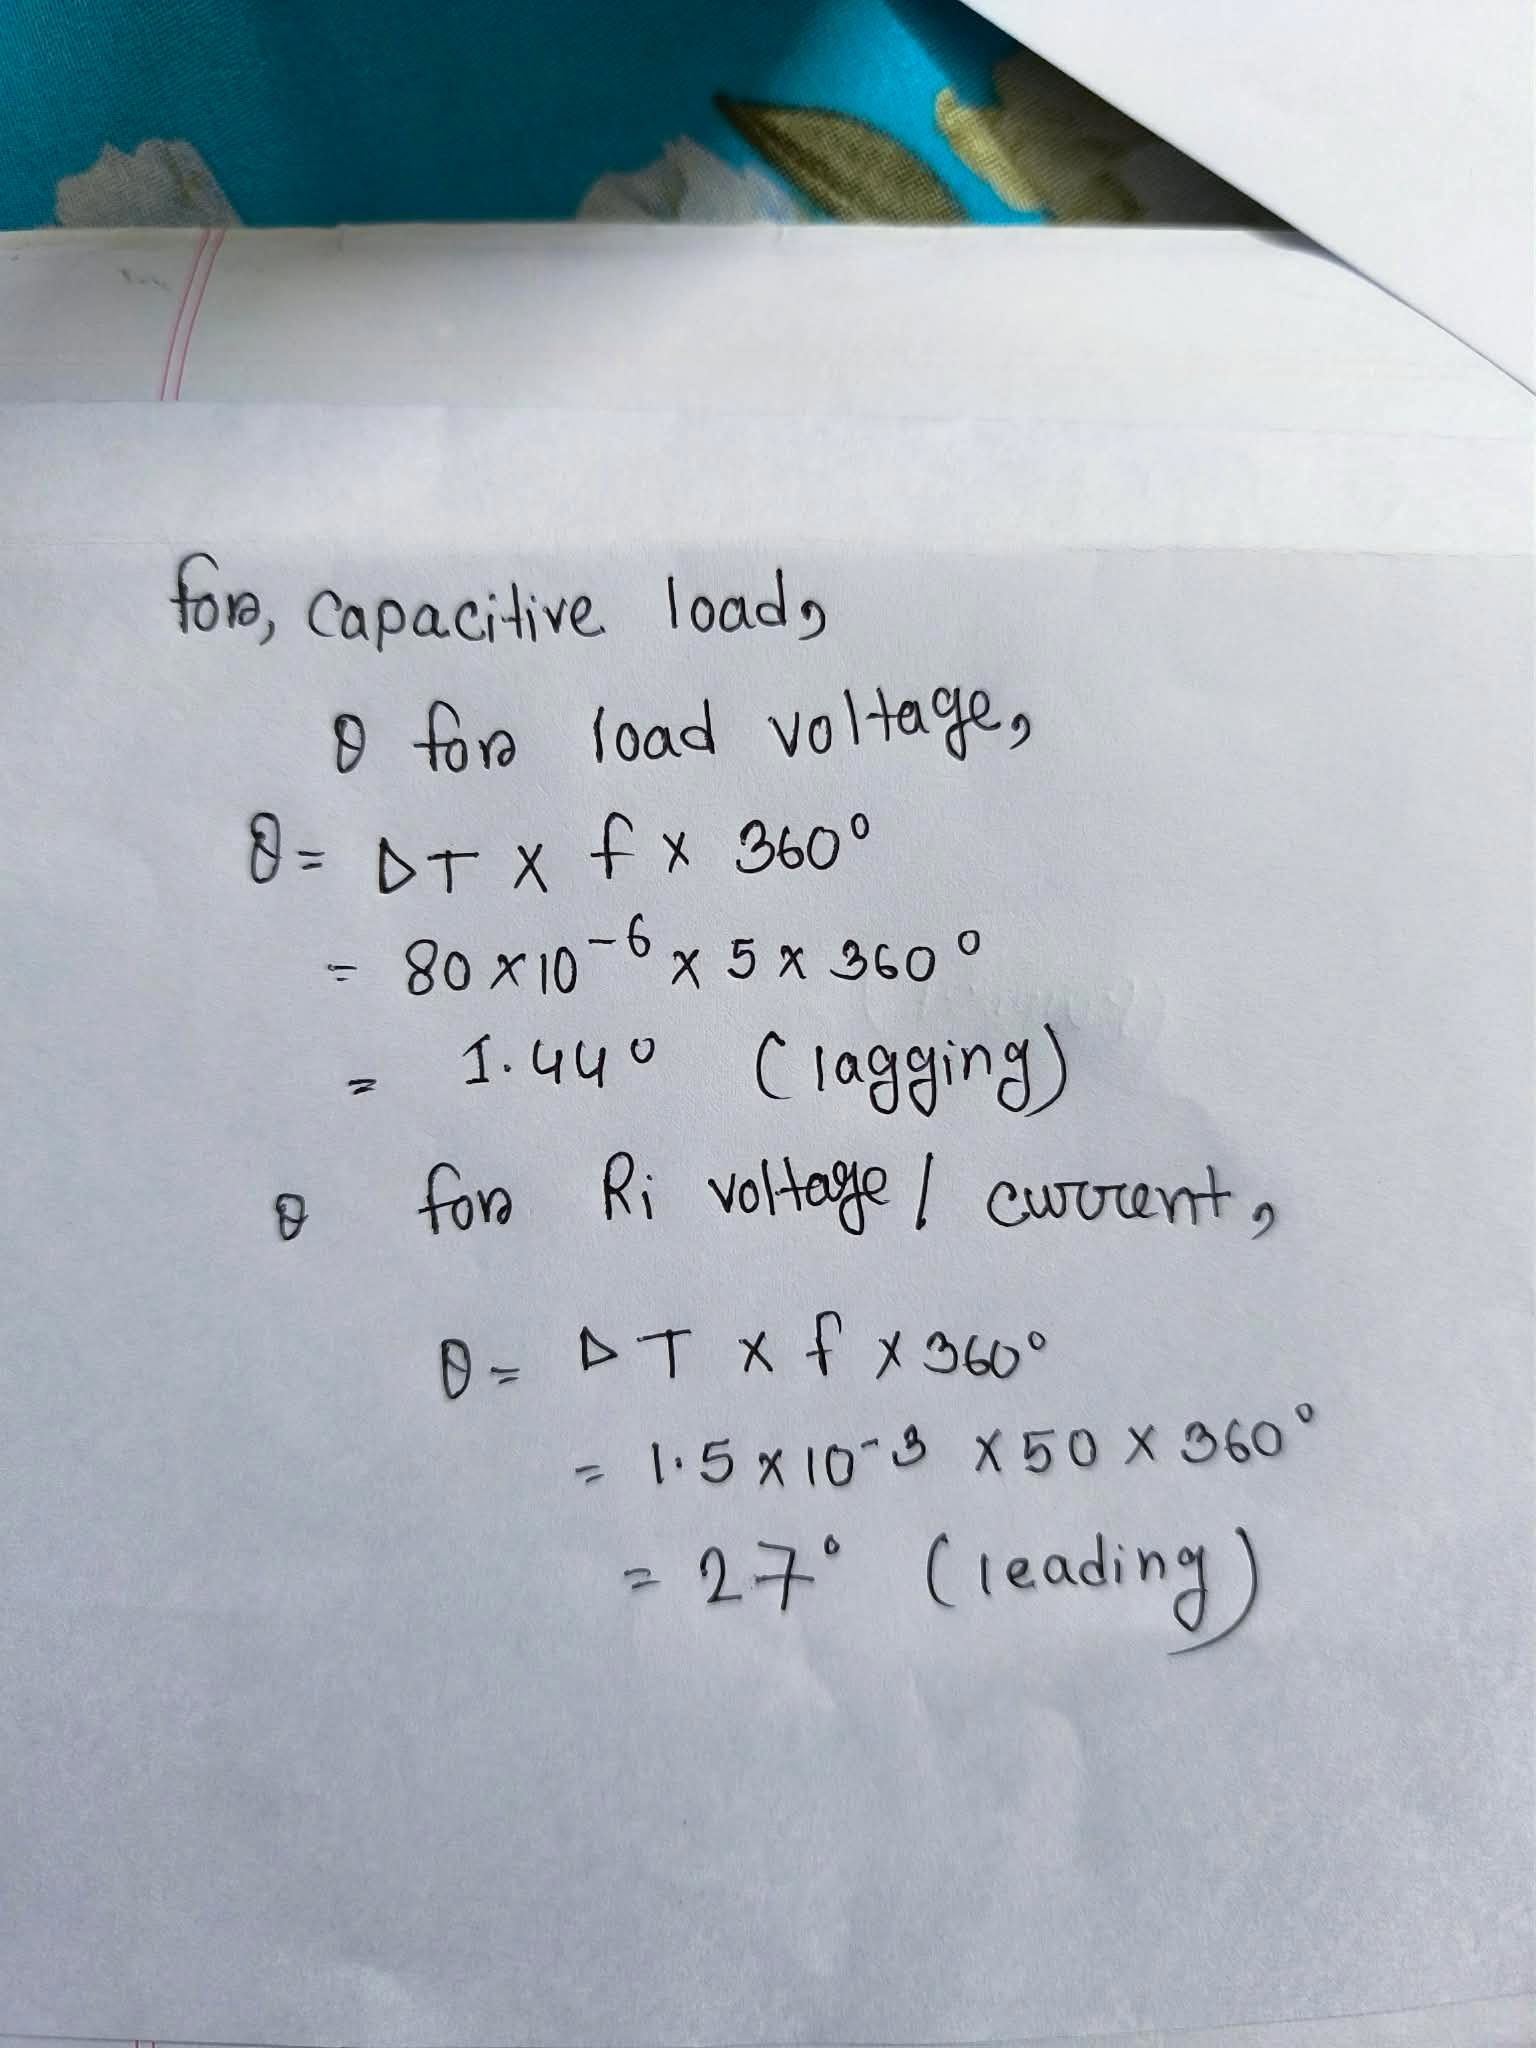 for, capacitive load,
θ for load voltage,
θ = ΔT x f x 360°
= 80 x 10⁻⁶ x 5 x 360°
= 1.44° (lagging)
θ for Ri voltage / current,
θ = ΔT x f x 360°
= 1.5 x 10⁻³ x 50 x 360°
= 27° (leading)